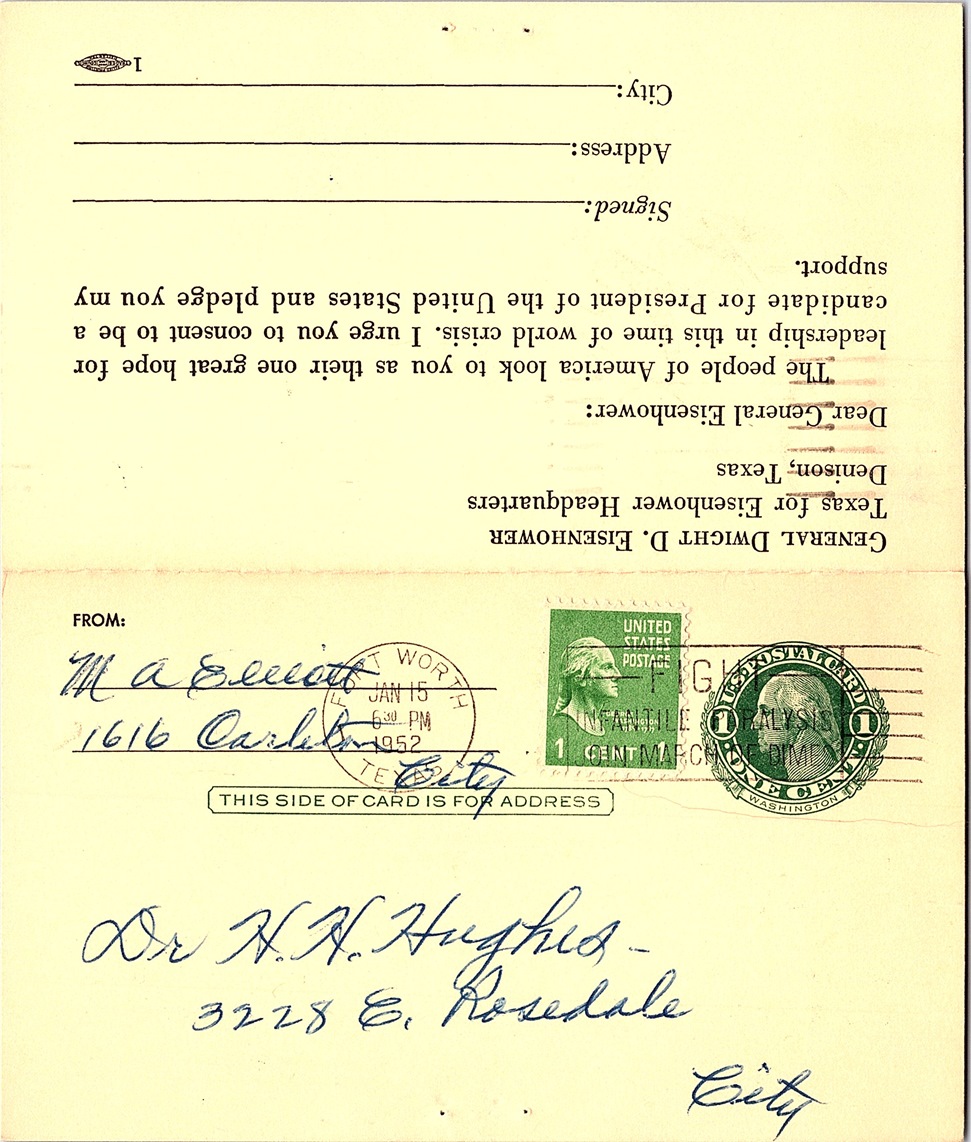 GENERAL DWIGHT D. EISENHOWER
Texas for Eisenhower Headquarters
Denison, Texas
Dear General Eisenhower:
The people of America look to you as their one great hope for
leadership in this time of world crisis. I urge you to consent to be a
candidate for President of the United States and pledge you my
support.
Signed:
Address:
City:
1
FROM:
M A Elliott
1616 Carleton
City
FORT WORTH
JAN 15
6 30 PM
1952
TEXAS
UNITED
STATES
POSTAGE
WASHINGTON
1 CENT 1
FIGHT
INFANTILE PARALYSIS
JOIN MARCH OF DIMES
U.S. POSTAL CARD
1 1
ONE CENT
WASHINGTON
THIS SIDE OF CARD IS FOR ADDRESS
Dr H. H. Hughes -
3228 E. Rosedale
City